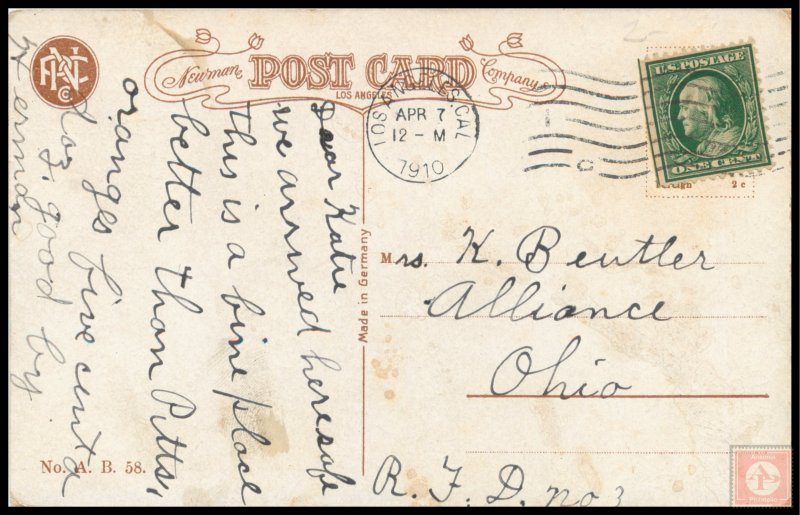 Newman POST CARD Company
LOS ANGELES
ANC Co
LOS ANGELES, CAL
APR 7
12 - M
1910
U.S. POSTAGE
ONE CENT
2c
Dear Katie
we arrived here safe
this is a fine place
better than Pitts,
oranges five cent a
doz. good by
Herman
Made in Germany
Mrs. K. Beutler
Alliance
Ohio
R. F. D. no 3
No. A. B. 58.